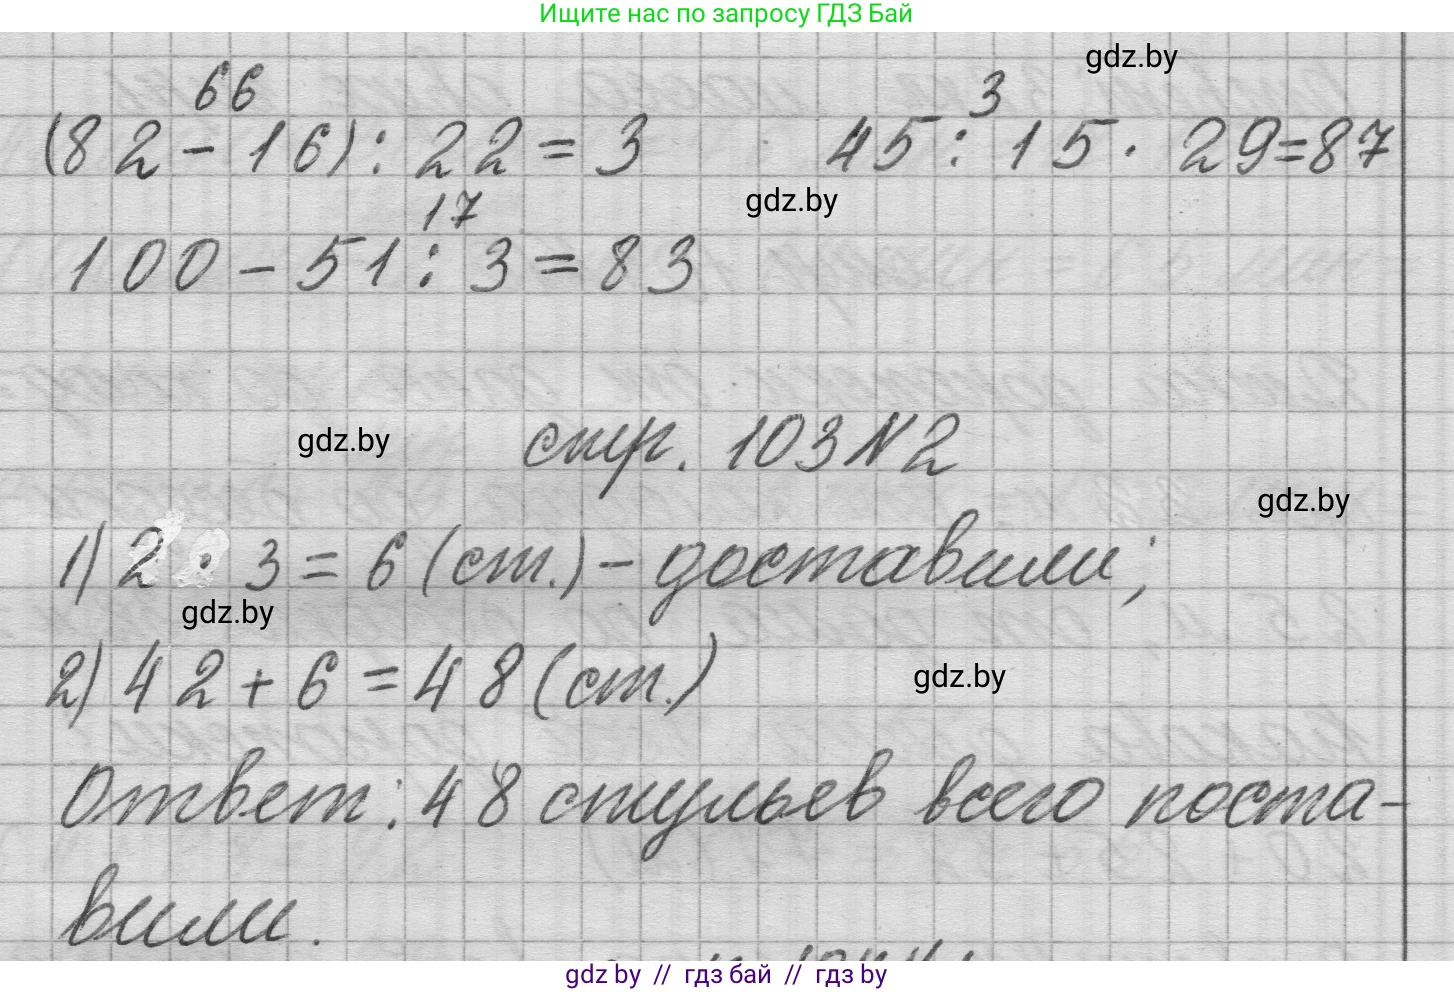 Ищите нас по запросу ГДЗ Бай
gdz.by
66 3
(82-16):22=3 45:15·29=87
gdz.by
17
100-51:3=83
gdz.by
стр. 103 N2
gdz.by
1) 2·3=6 (ст.) – доставили;
gdz.by
2) 42+6=48 (ст.)
gdz.by
Ответ: 48 стульев всего поста-
вили.
gdz by // гдз бай // гдз by